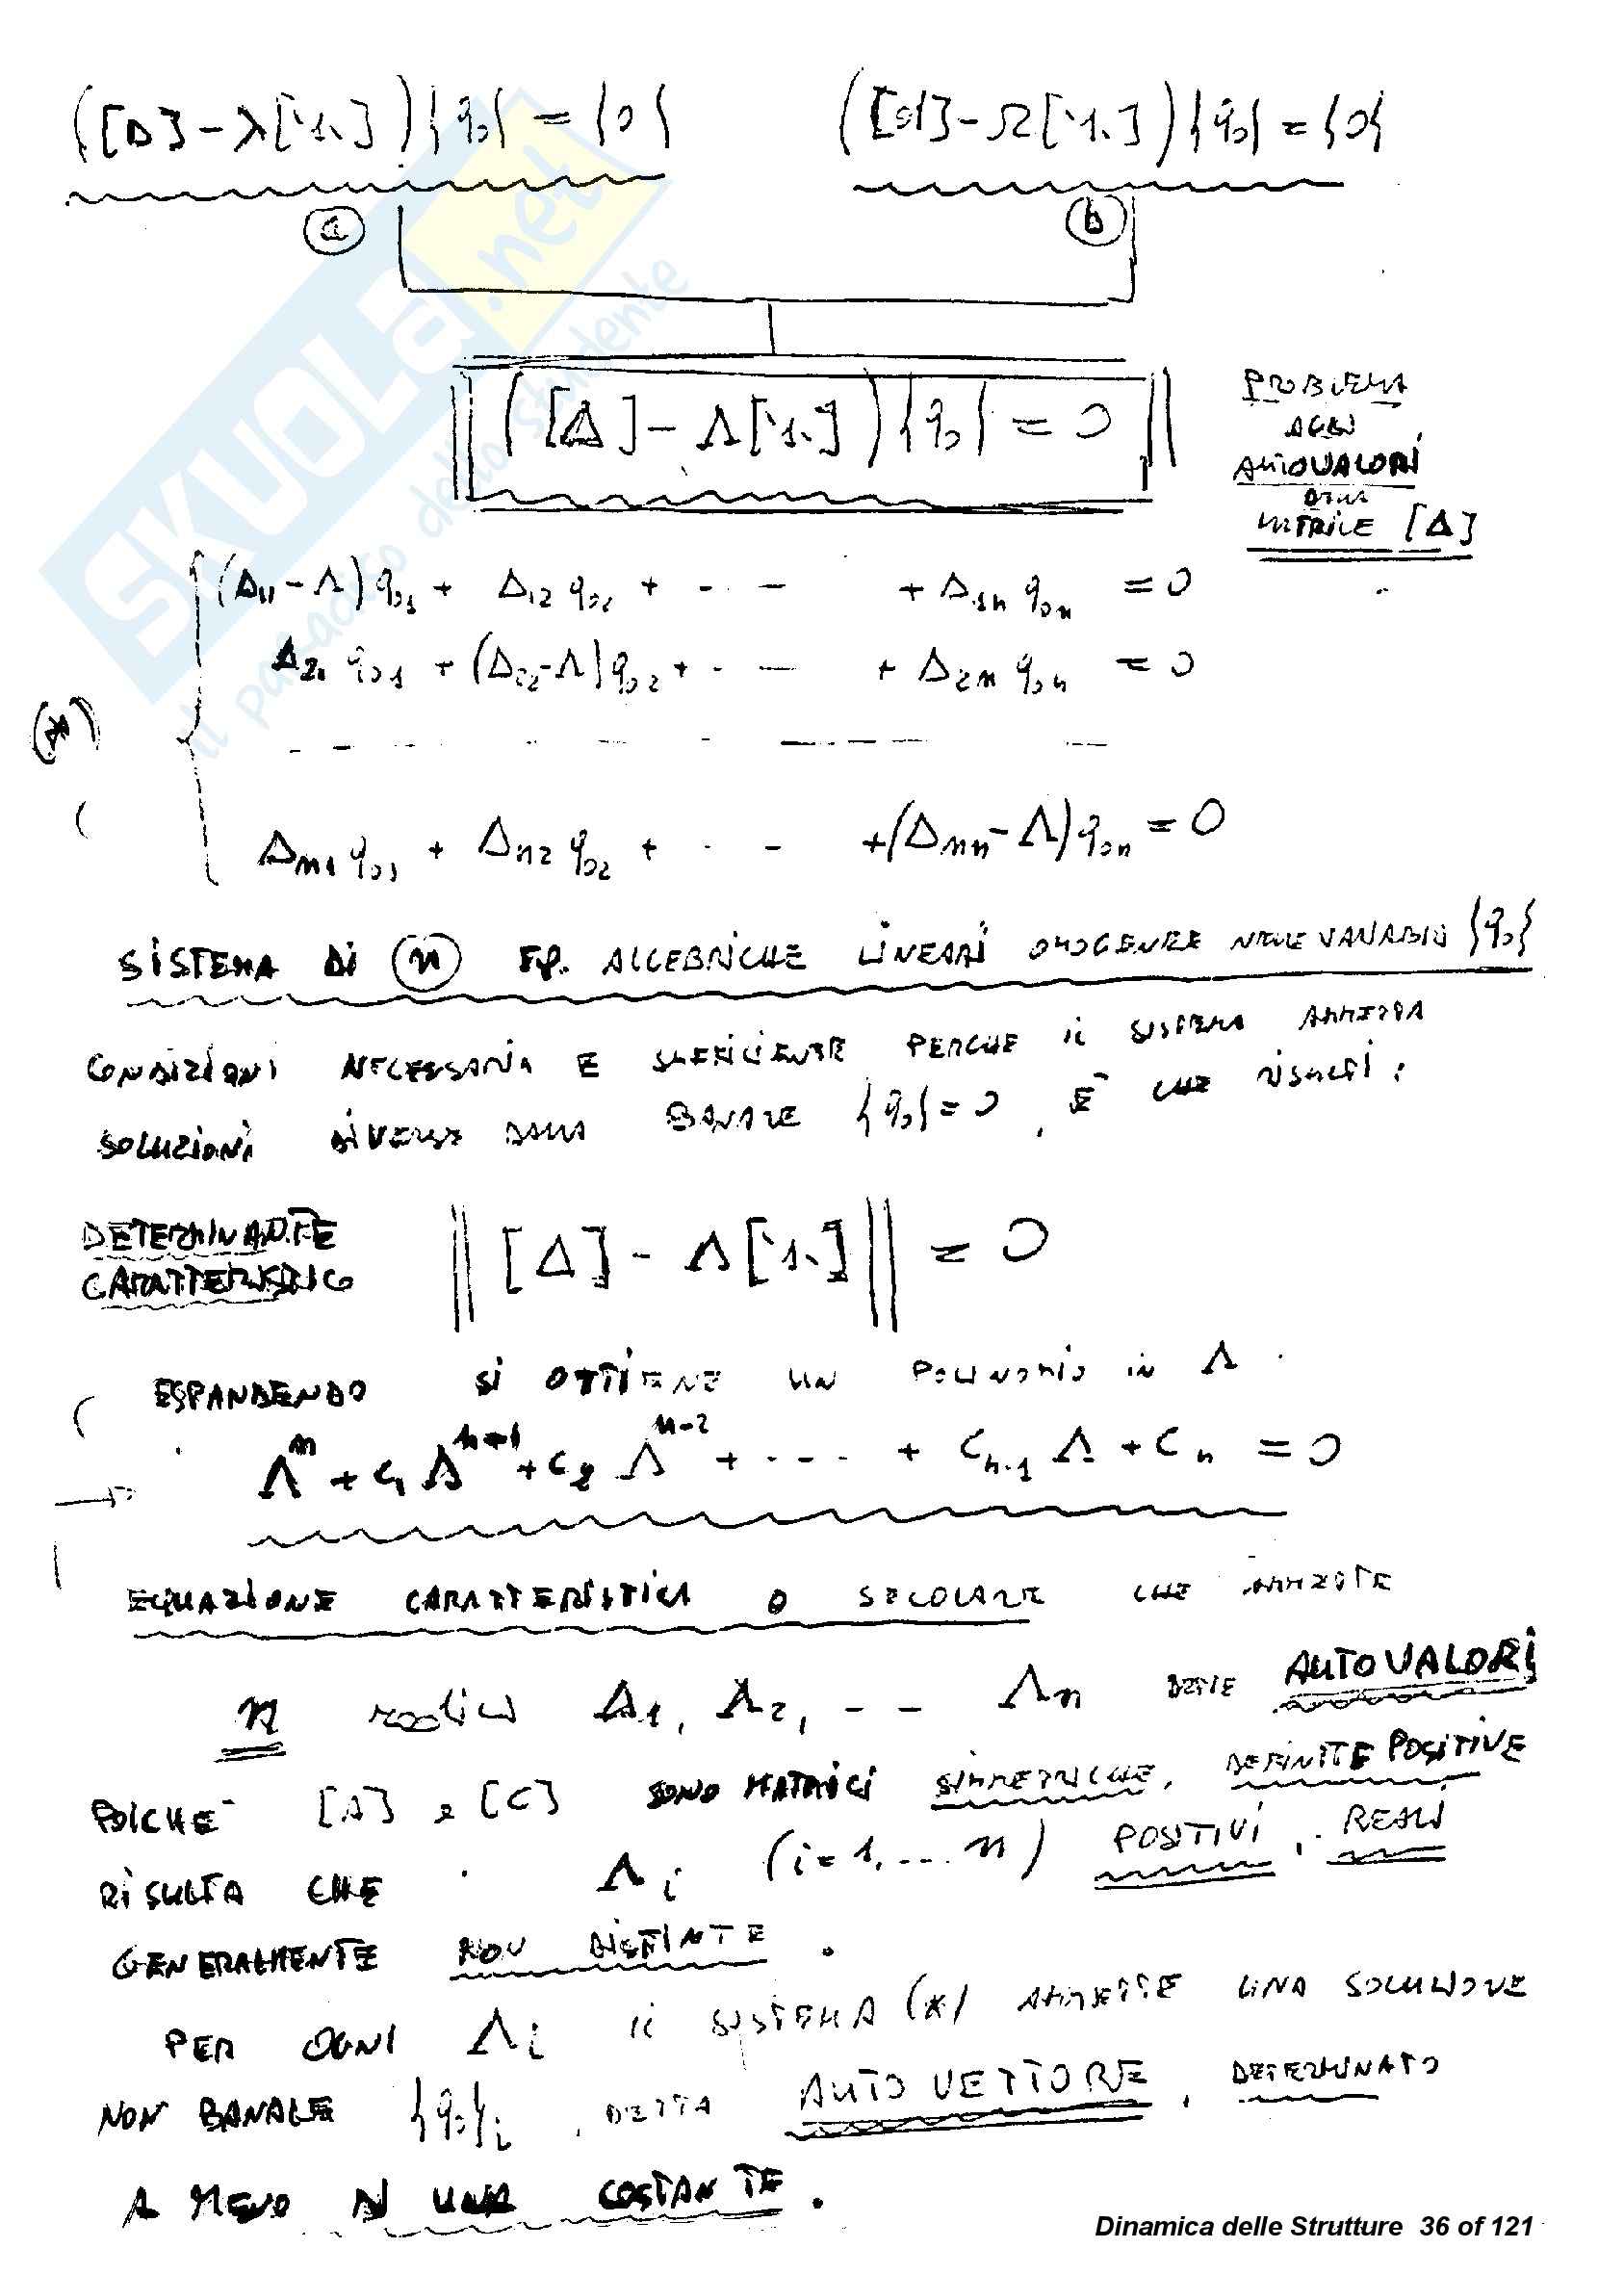 ([D]-λ[`1.]){q₀}={0} ([d]-Ω[`1.]){q₀}={0}
a b
([Δ]-Λ[`1.]){q₀}=0
PROBLEMA
AGLI
AUTOVALORI
DELLA
MATRICE [Δ]
(Δ₁₁-Λ)q₀₁ + Δ₁₂ q₀₂ + - - - + Δ₁ₙ q₀ₙ = 0
Δ₂₁ q₀₁ + (Δ₂₂-Λ)q₀₂ + - - + Δ₂ₙ q₀ₙ = 0
(*)
Δₙ₁ q₀₁ + Δₙ₂ q₀₂ + - - +(Δₙₙ-Λ)q₀ₙ = 0
SISTEMA DI n EQ. ALGEBRICHE LINEARI OMOGENEE NELLE VARIABILI {q₀}
CONDIZIONI NECESSARIA E SUFFICIENTE PERCHE IL SISTEMA AMMETTA
SOLUZIONI DIVERSE DALLA BANALE {q₀}=0, È CHE RISULTI:
DETERMINANTE
CARATTERISTICO
||[Δ]-Λ[`1.]|| = 0
ESPANDENDO SI OTTIENE UN POLINOMIO IN Λ
Λⁿ + C₁ Λⁿ⁻¹ + C₂ Λⁿ⁻² + - - - - + Cₙ₋₁ Λ + Cₙ = 0
EQUAZIONE CARATTERISTICA O SECOLARE CHE AMMETTE
n radici Λ₁, Λ₂, - - Λₙ DETTE AUTOVALORI
POICHE [A] e [C] SONO MATRICI SIMMETRICHE, DEFINITE POSITIVE
RISULTA CHE Λᵢ (i=1,...n) POSITIVI, REALI
GENERALMENTE NON DISTINTE.
PER OGNI Λᵢ IL SISTEMA (*) AMMETTE UNA SOLUZIONE
NON BANALE {q₀}ᵢ, DETTA AUTOVETTORE, DETERMINATO
A MENO DI UNA COSTANTE.
SKUOLA.net
il paradiso dello studente
Dinamica delle Strutture 36 of 121